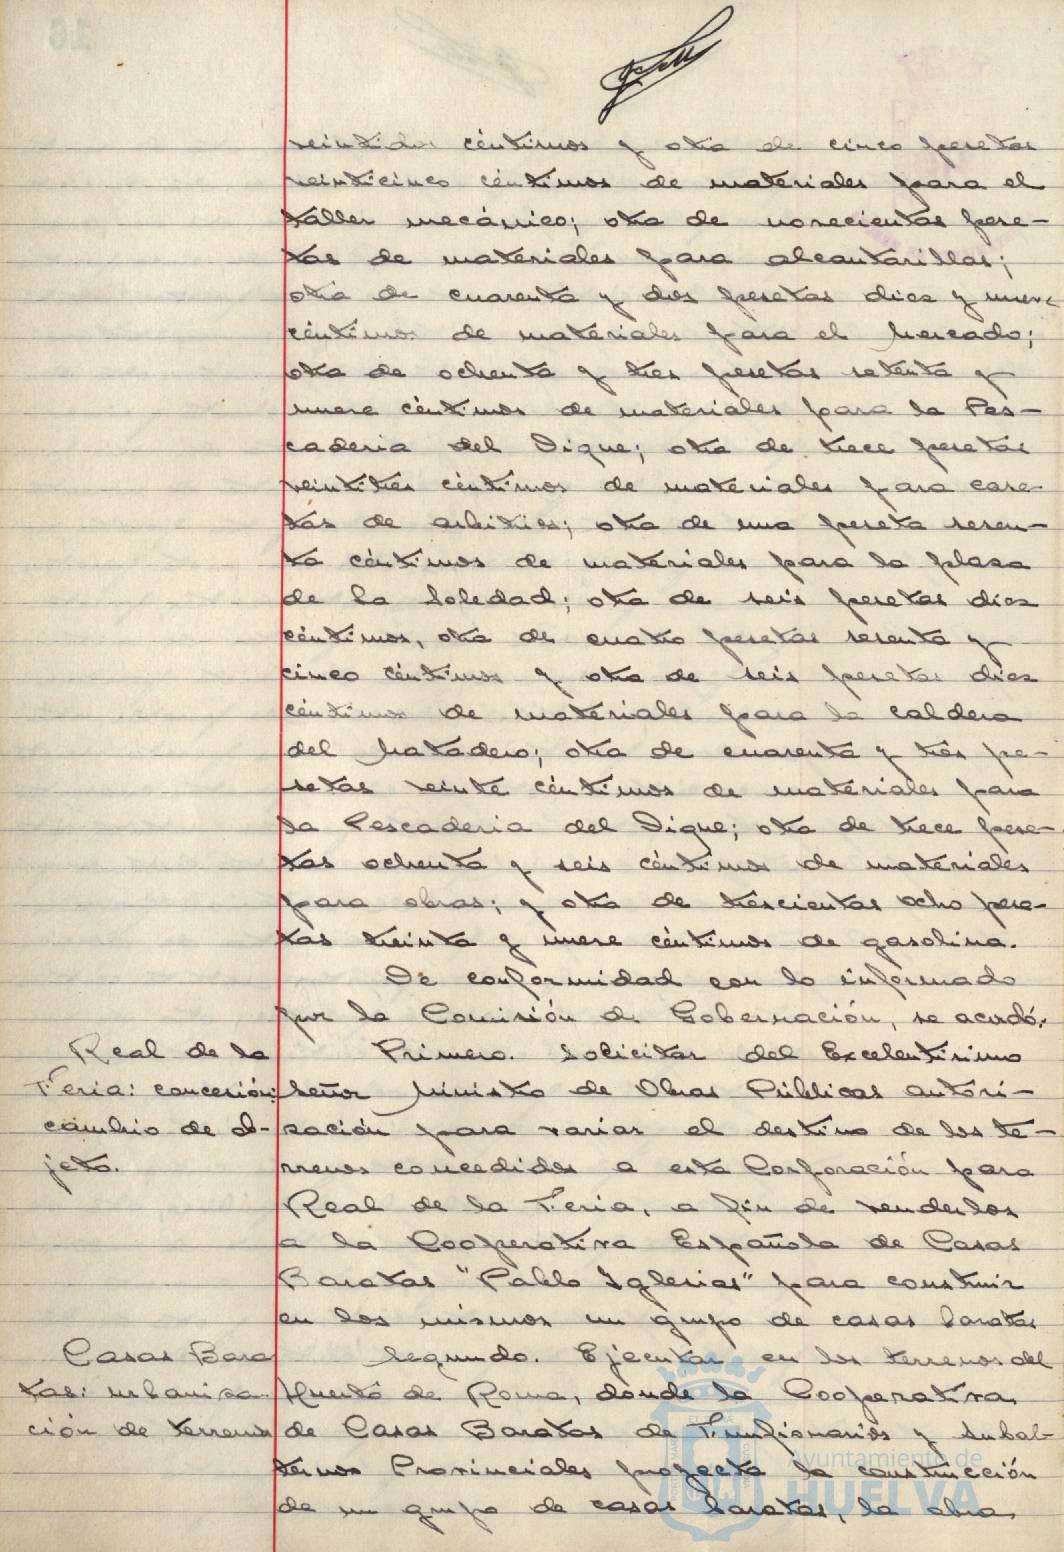 veintidos céntimos y otra de cinco pesetas
veinticinco céntimos de materiales para el
taller mecánico; otra de novecientas pese-
tas de materiales para alcantarillas;
otra de cuarenta y dos pesetas diez y nueve
céntimos de materiales para el Mercado;
otra de ochenta y tres pesetas setenta y
nueve céntimos de materiales para la Pes-
caderia del Dique; otra de trece pesetas
veintitres céntimos de materiales para case-
tas de arbitrios; otra de una peseta sesen-
ta céntimos de materiales para la plaza
de la Soledad; otra de seis pesetas diez
céntimos, otra de cuatro pesetas sesenta y
cinco céntimos y otra de seis pesetas diez
céntimos de materiales para la caldera
del Matadero; otra de cuarenta y tres pe-
setas veinte céntimos de materiales para
la Pescaderia del Dique; otra de trece pese-
tas ochenta y seis céntimos de materiales
para obras; y otra de trescientas ocho pese-
tas treinta y nueve céntimos de gasolina.
De conformidad con lo informado
por la Comisión de Gobernación, se acordó:
Real de la
Feria: concesión
cambio de ob-
jeto.
Primero. Solicitar del Excelentisimo
Señor Ministro de Obras Públicas autori-
zación para variar el destino de los te-
rrenos concedidos a esta Corporación para
Real de la Feria, a fin de venderlos
a la Cooperativa Española de Casas
Baratas "Pablo Iglesias" para construir
en los mismos un grupo de casas baratas
Casas Bara
tas: urbaniza-
ción de terrenos
Segundo. Ejecutar en los terrenos del
Huerto de Roma, donde la Cooperativa
de Casas Baratas de Funcionarios y Subal-
ternos Provinciales proyecta la construcción
de un grupo de casas baratas, la obra
Ayuntamiento de
HUELVA